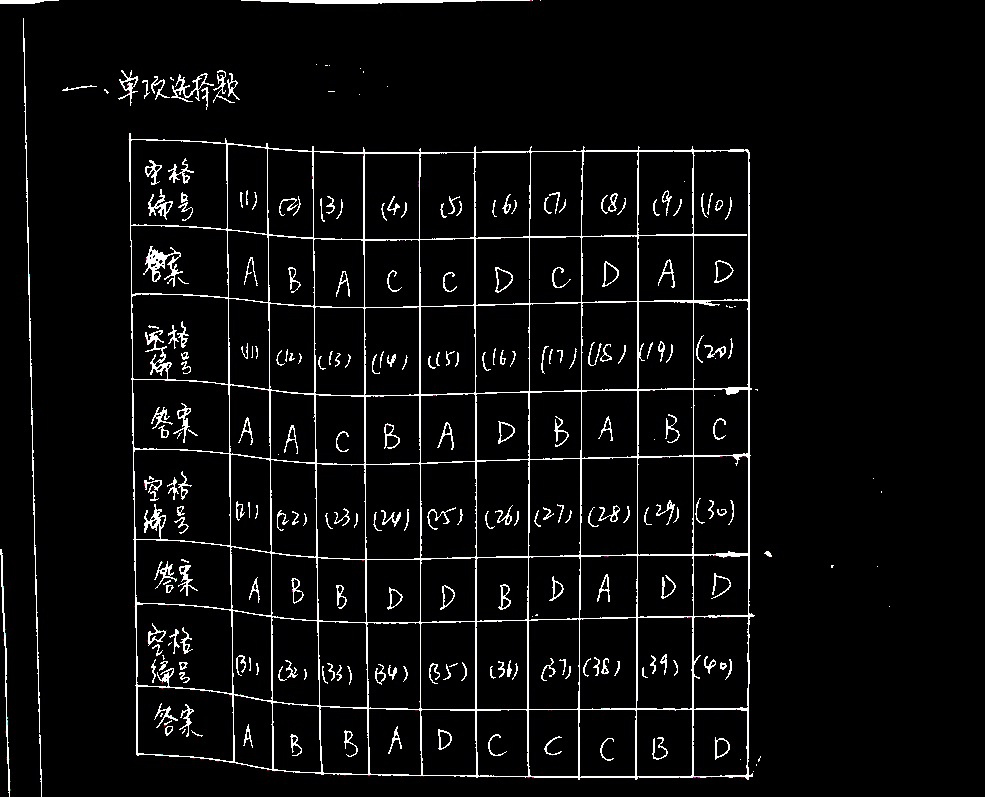 一、单项选择题
空格编号 (1) (2) (3) (4) (5) (6) (7) (8) (9) (10)
答案 A B A C C D C D A D
空格编号 (11) (12) (13) (14) (15) (16) (17) (18) (19) (20)
答案 A A C B A D B A B C
空格编号 (21) (22) (23) (24) (25) (26) (27) (28) (29) (30)
答案 A B B D D B D A D D
空格编号 (31) (32) (33) (34) (35) (36) (37) (38) (39) (40)
答案 A B B A D C C C B D